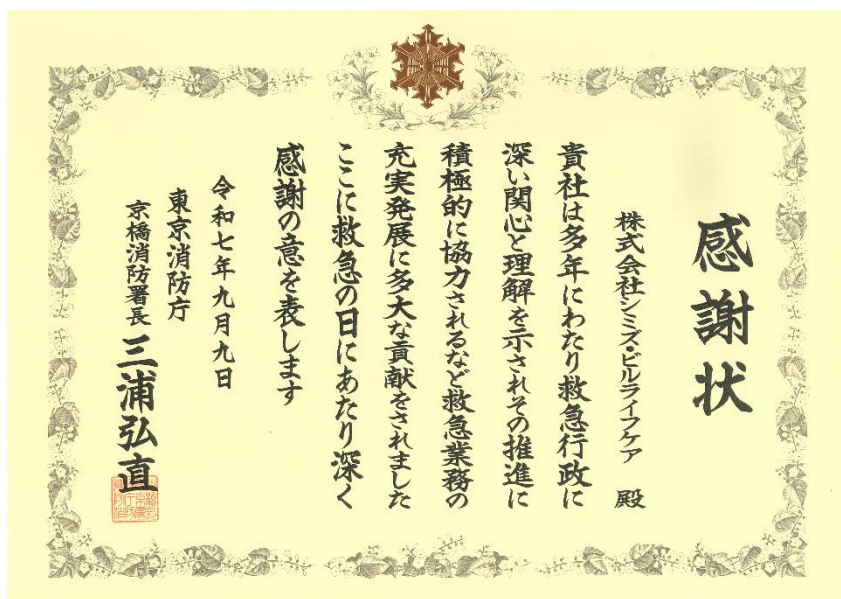 感謝状
株式会社シミズ・ビルライフケア 殿
貴社は多年にわたり救急行政に
深い関心と理解を示されその推進に
積極的に協力されるなど救急業務の
充実発展に多大な貢献をされました
ここに救急の日にあたり深く
感謝の意を表します
令和七年九月九日
東京消防庁
京橋消防署長 三浦弘直